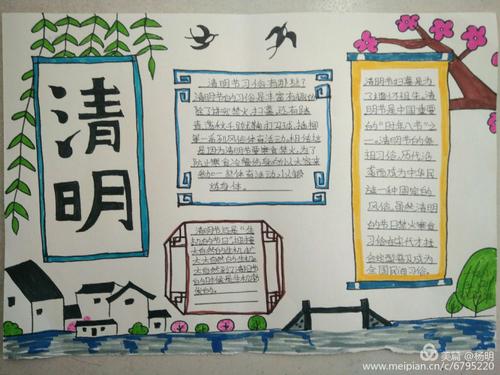 清明
清明节习俗有哪些?
清明节的习俗是丰富有趣的
除了讲究禁火、扫墓,还有踏
青、荡秋千、蹴鞠、打马球、插柳
等一系列风俗体育活动。相传这
是因为清明节要寒食禁火,为了
防止寒食冷餐伤身,所以大家来
参加一些体育活动,以锻
炼身体。
清明节也是"生
机的节日"
清明节扫墓是为
了缅怀祖先。清
明节是中国重要
的"时年八节"之
一。清明节的祭
祖习俗,历代沿
袭而成为中华民
族一种固定的
风俗。虽然清明
的节日禁火寒食
习俗在宋代才
全国民间习俗。
美篇 @杨明
www.meipian.cn/c/6795220